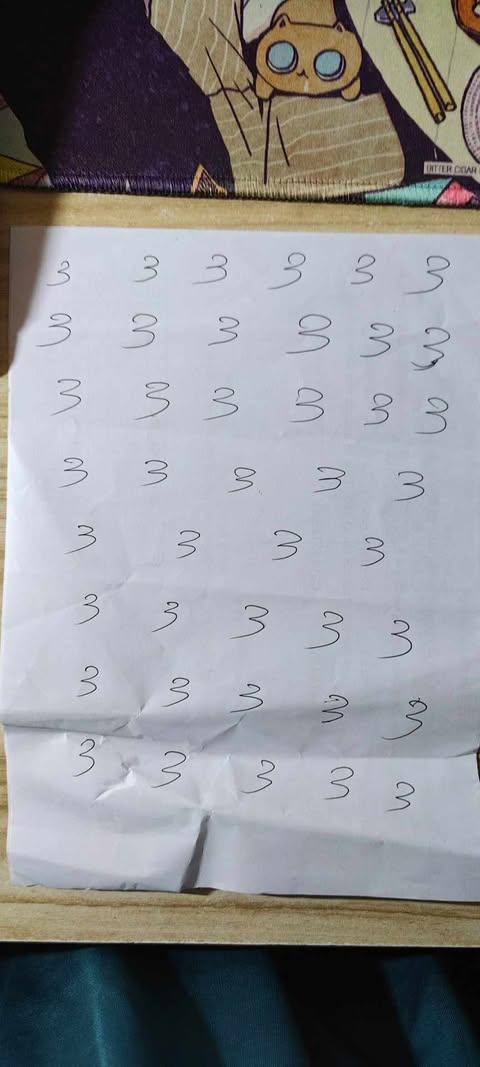 BITTER COAR
3 3 3 3 3 3
3 3 3 3 3 3
3 3 3 3 3 3
3 3 3 3 3
3 3 3 3
3 3 3 3 3
3 3 3 3 3
3 3 3 3 3